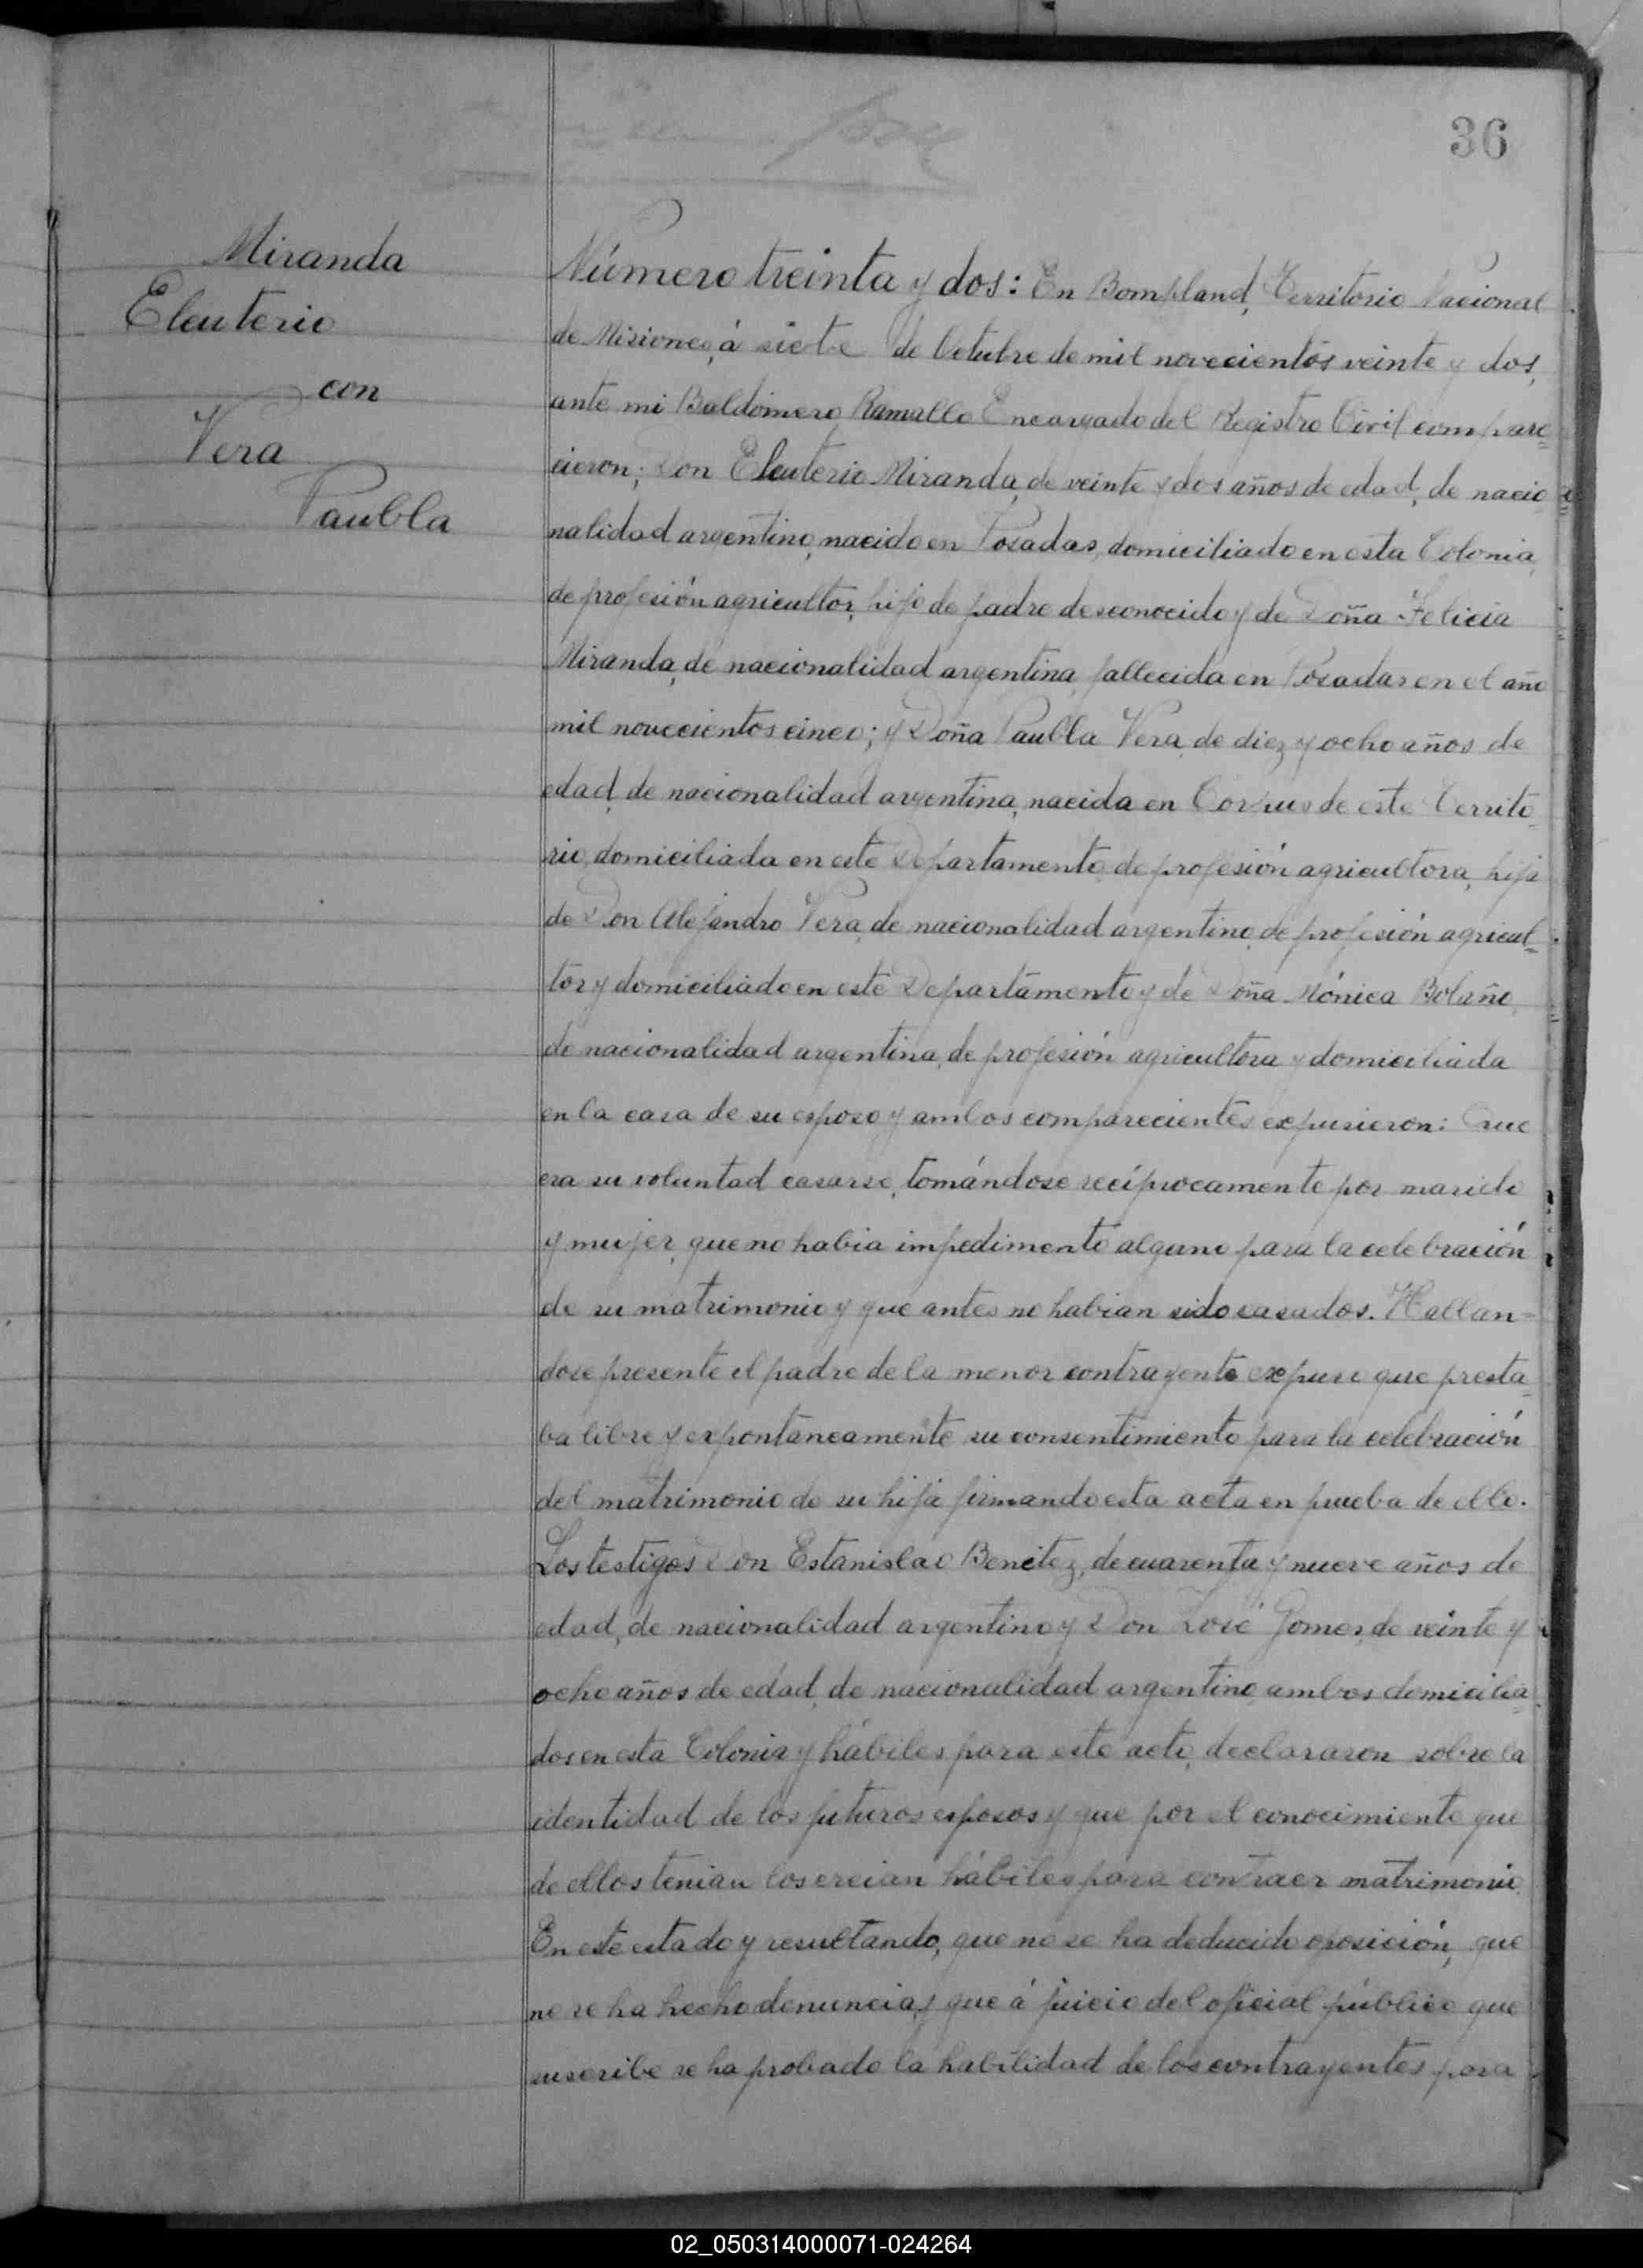 36
Miranda
Eleuterio
con
Vera
Paubla
Número treinta y dos: En Bompland, Territorio Nacional
de Misiones, á siete de Octubre de mil novecientos veinte y dos,
ante mi Baldomero Ramallo Encargado del Registro Civil compare=
cieron; Don Eleuterio Miranda, de veinte y dos años de edad, de nacio
nalidad argentino, nacido en Posadas, domiciliado en esta Colonia,
de profesión agricultor, hijo de padre desconocido y de Doña Felicia
Miranda, de nacionalidad argentina, fallecida en Posadas en el año
mil novecientos cinco; y Doña Paubla Vera, de diez y ocho años de
edad, de nacionalidad argentina, nacida en Corpus de este Territo=
rio, domiciliada en este Departamento, de profesión agricultora, hija
de Don Alejandro Vera, de nacionalidad argentino, de profesión agricul=
tor y domiciliado en este Departamento y de Doña Mónica Bolaño,
de nacionalidad argentina, de profesión agricultora y domiciliada
en la casa de su esposo y ambos comparecientes expusieron: Que
era su voluntad casarse, tomándose recíprocamente por marido
y mujer, que no habia impedimento alguno para la celebración
de su matrimonio y que antes no habian sido casados. Hallan=
dose presente el padre de la menor contrayente expuso que presta=
ba libre y expontáneamente su consentimiento para la celebración
del matrimonio de su hija firmando esta acta en prueba de ello.
Los testigos Don Estanislao Benitez, de cuarenta y nueve años de
edad, de nacionalidad argentino y Don José Gomes, de veinte y
ocho años de edad, de nacionalidad argentino, ambos domicilia=
dos en esta Colonia y hábiles para este acto, declararon sobre la
identidad de los futuros esposos y que por el conocimiento que
de ellos tenian los creian hábiles para contraer matrimonio.
En este estado y resultando, que no se ha deducido oposición, que
no se ha hecho denuncia, y que á juicio del oficial público que
suscribe se ha probado la habilidad de los contrayentes para
02_050314000071-024264